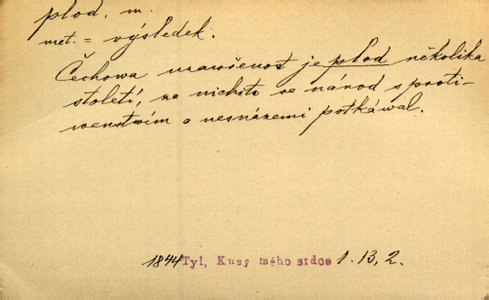 plod, m.
met. = výsledek.
Čechowa mravenost je plod několika
století, na nichžto se národ s proti-
wenstwím a nesnázemi potkáwal.
1844 Tyl, Kusy mého srdce 1. 13, 2.